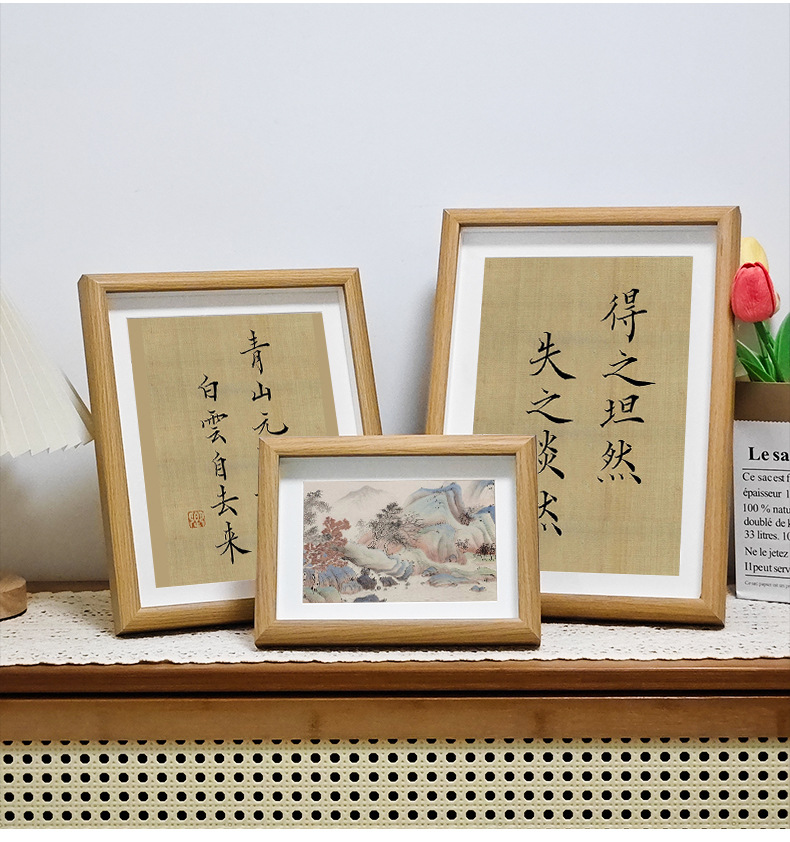 青山元
白雲自去来
得之坦然
失之淡然
Le sa
Ce sac est f
épaisseur 1
100 % natu
doublé de k
33 litres. 10
Ne le jetez
Il peut serv